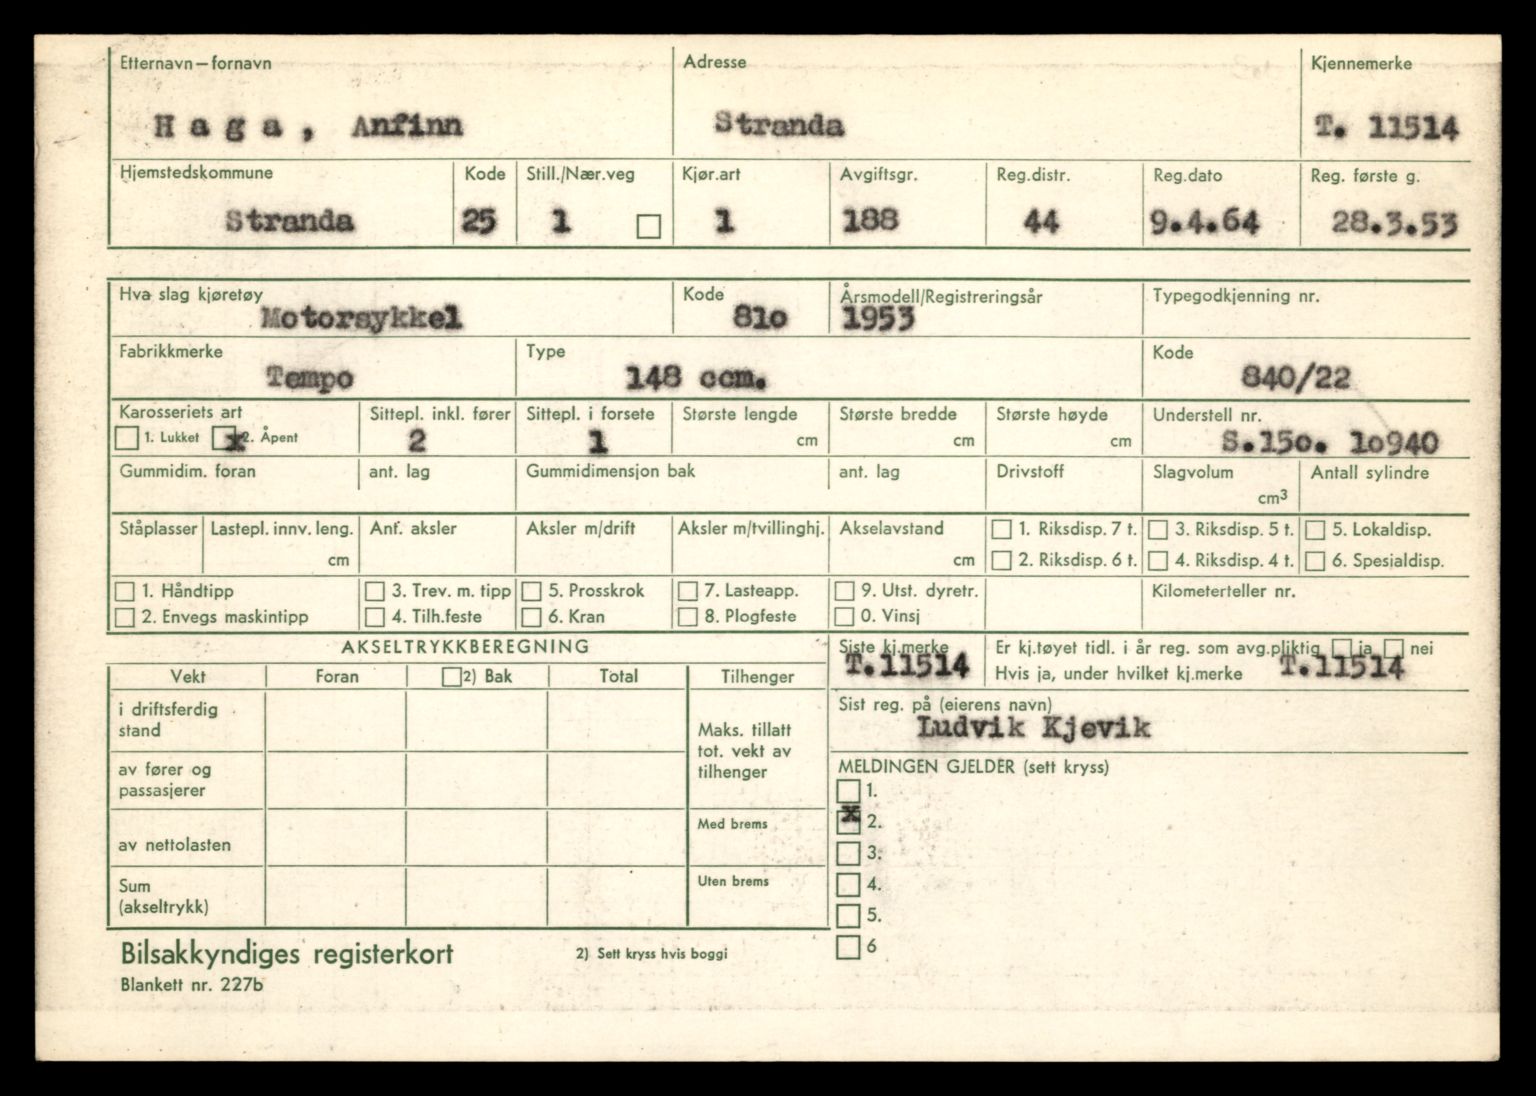 Etternavn—fornavn Adresse Kjennemerke
Haga, Anfinn Stranda T. 11514
Hjemstedskommune Kode Still./Nær.veg Kjør.art Avgiftsgr. Reg.distr. Reg.dato Reg. første g.
Stranda 25 1 1 188 44 9.4.64 28.3.53
Hva slag kjøretøy Kode Årsmodell/Registreringsår Typegodkjenning nr.
Motorsykkel 81o 1953
Fabrikkmerke Type Kode
Tempo 148 ccm. 840/22
Karosseriets art Sittepl. inkl. fører Sittepl. i forsete Største lengde Største bredde Største høyde Understell nr.
1. Lukket x 2. Åpent 2 1 cm cm cm S.15o. 1o940
Gummidim. foran ant. lag Gummidimensjon bak ant. lag Drivstoff Slagvolum Antall sylindre
cm³
Ståplasser Lastepl. innv. leng. Ant. aksler Aksler m/drift Aksler m/tvillinghj. Akselavstand 1. Riksdisp. 7 t. 3. Riksdisp. 5 t. 5. Lokaldisp.
cm cm 2. Riksdisp. 6 t. 4. Riksdisp. 4 t. 6. Spesialdisp.
1. Håndtipp 3. Trev. m. tipp 5. Prosskrok 7. Lasteapp. 9. Utst. dyretr. Kilometerteller nr.
2. Envegs maskintipp 4. Tilh.feste 6. Kran 8. Plogfeste 0. Vinsj
AKSELTRYKKBEREGNING
Siste kj.merke Er kj.tøyet tidl. i år reg. som avg.pliktig ja nei
T.11514 Hvis ja, under hvilket kj.merke T.11514
Vekt Foran 2) Bak Total Tilhenger
Sist reg. på (eierens navn)
Ludvik Kjevik
i driftsferdig
stand
Maks. tillatt
tot. vekt av
tilhenger
av fører og
passasjerer
MELDINGEN GJELDER (sett kryss)
1.
x 2.
3.
4.
5.
6
av nettolasten
Med brems
Sum
(akseltrykk)
Uten brems
Bilsakkyndiges registerkort 2) Sett kryss hvis boggi
Blankett nr. 227b